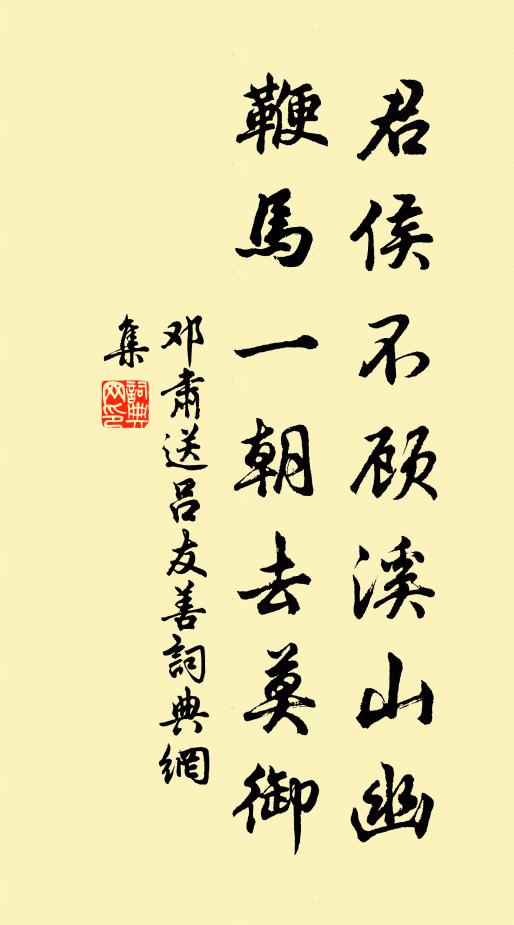 君侯不顾溪山幽
鞭馬一朝去莫御
邓肃送吕友善詞典網
集
詞典网印